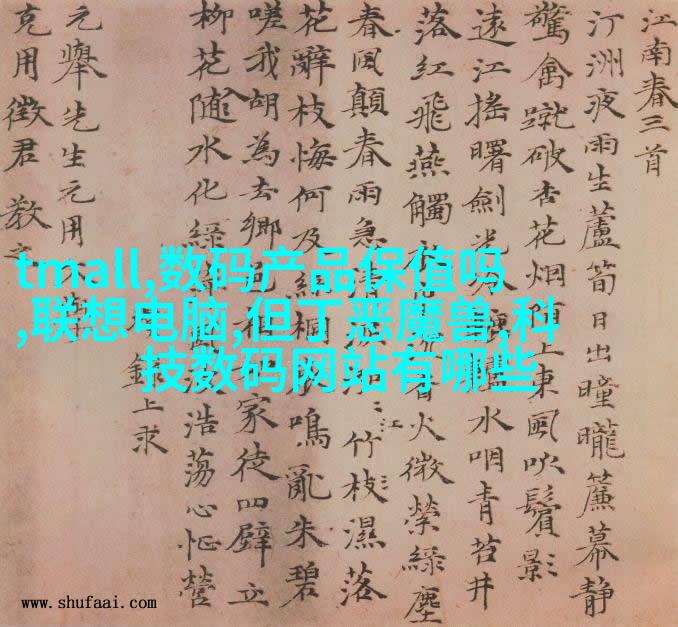 江南春三首
汀洲夜雨生蘆筍日出曈曨簾幕靜
驚禽蹴破杏花烟陌上東風吹鬢影
遠江搖曙劍光水咽青苔井
落紅飛燕觸香火微縈綠塵
春風顛春雨急清江竹枝濕落
花辭枝悔何及絲桐鳴亂朱碧
嗟我胡為去鄉邑相家徒四壁立
柳花隨水化綠浩蕩心怔營
錄上求
元舉先生元用
克用徵君 教之
tmall,数码产品保值吗
,联想电脑,但丁恶魔兽,科
技数码网站有哪些
www.shufaai.com